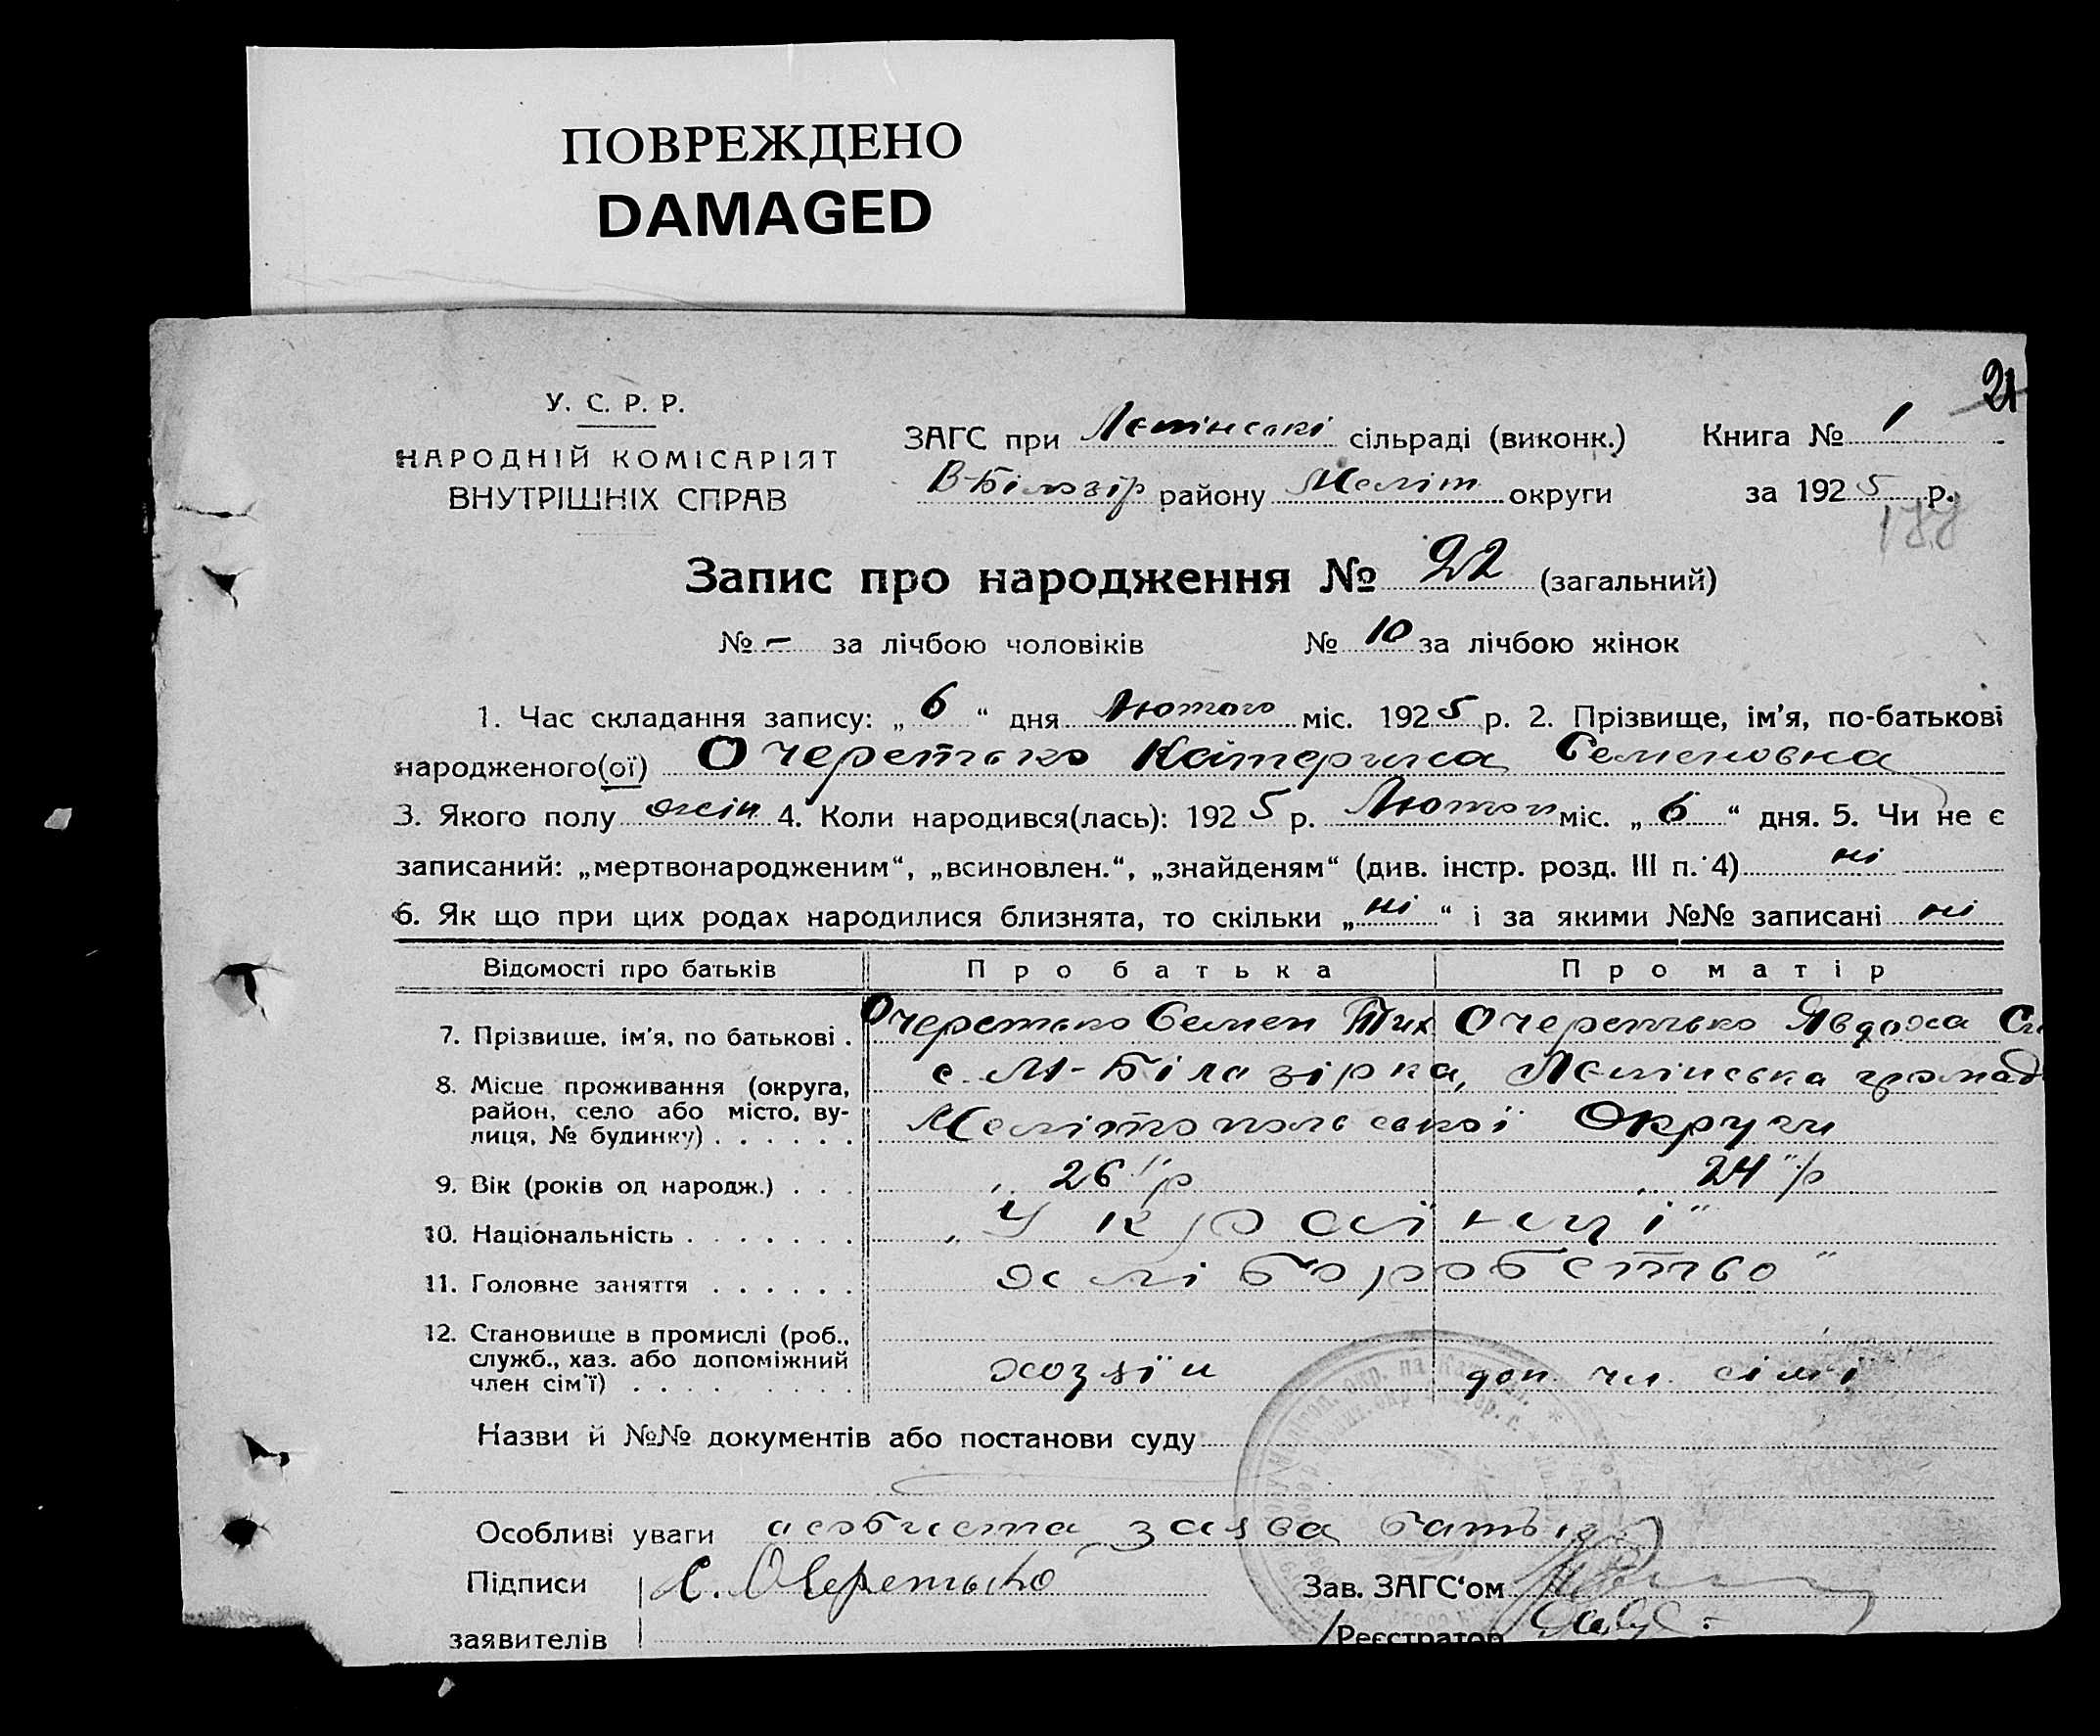 ПОВРЕЖДЕНО
DAMAGED
21
У. С. Р. Р.
НАРОДНІЙ КОМІСАРІЯТ
ВНУТРІШНІХ СПРАВ
ЗАГС при Ленінські сільраді (виконк.) Книга № 1
В-Білозір району Меліт округи за 1925 р.
188
Запис про народження № 22 (загальний)
№ - за лічбою чоловіків № 10 за лічбою жінок
1. Час складання запису: „6“ дня Лютого міс. 1925 р. 2. Прізвище, ім'я, по-батькові
народженого(ої) Очеретько Катерина Семеновна
3. Якого полу жін 4. Коли народився(лась): 1925 р. Лютого міс. „6“ дня. 5. Чи не є
записаний: „мертвонародженим“, „всиновлен.“, „знайденям“ (див. інстр. розд. III п. 4) ні
6. Як що при цих родах народилися близнята, то скільки „ні“ і за якими №№ записані ні
Відомості про батьків Про батька Про матір
7. Прізвише, ім'я, по батькові . Очеретько Семен Тих Очеретько Явдоха Си
8. Місце проживання (округа, район, село або місто, вулиця, № будинку) . . . . . . с. М-Білазірка, Ленінська громад
Мелітопольської Округи
9. Вік (років од народж.) . . . „26“ р „24“ р
10. Національність . . . . . . . „Українці“
11. Головне заняття . . . . . . хліборобство“
12. Становище в промислі (роб., служб., хаз. або допоміжний член сім'ї) . . . . хозяїн доп. чл. сімї
Назви й №№ документів або постанови суду
Особливі уваги особиста заява батька
Підписи С. Очеретько Зав. ЗАГС'ом
заявителів Реєстратор